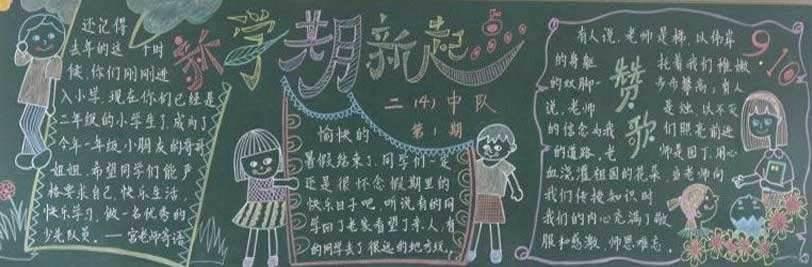 新学期新起点
二(4)中队
第1期
还记得
去年的这个时
候，你们刚刚进
入小学，现在你们已经是
二年级的小学生了，成为了
今年一年级小朋友的哥哥
姐姐，希望同学们能严
格要求自己，快乐生活，
快乐学习，做一名优秀的
少先队员。——宫老师寄语
愉快的
暑假结束了，同学们一定
还是很怀念假期里的
快乐日子吧，听说有的同
学回了老家看望了亲人，有
的同学去了很远的地方玩，
赞歌
9.10
有人说，老师是梯，以伟岸
的身躯托着我们稚嫩
的双脚一步步攀高，有人
说，老师是烛，以不灭
的信念为我们照亮前进
的道路，老师是园丁，用心
血浇灌祖国的花朵，当老师向
我们传授知识时
我们的内心充满了敬
服和感激，师恩难忘。